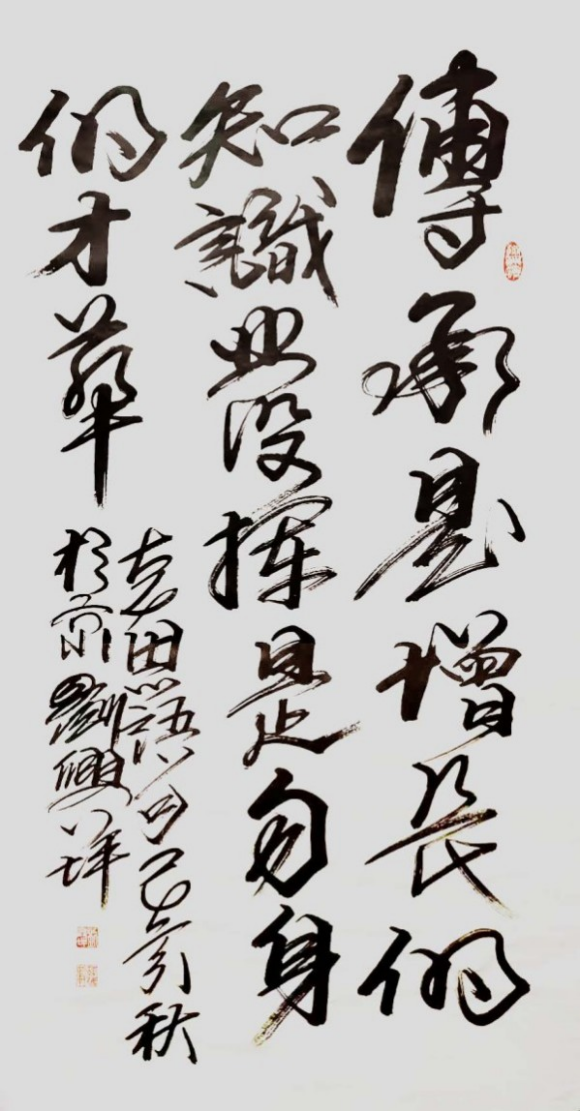 傳承是增長的
知識發揮是自身
的才華
田語句己亥秋
於京劉興祥